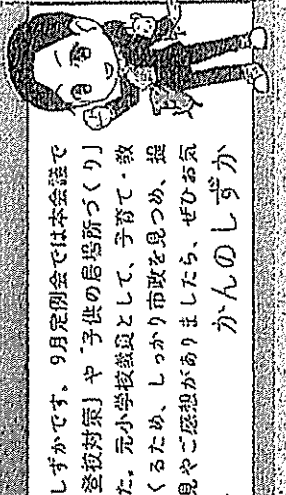 しずかです。9月定例会では本会議で
登校対策」や「子供の居場所づくり」
た。元小学校教員として、子育て・教
くるため、しっかり市政を見つめ、提
見やご感想がありましたら、ぜひお気
かんのしずか